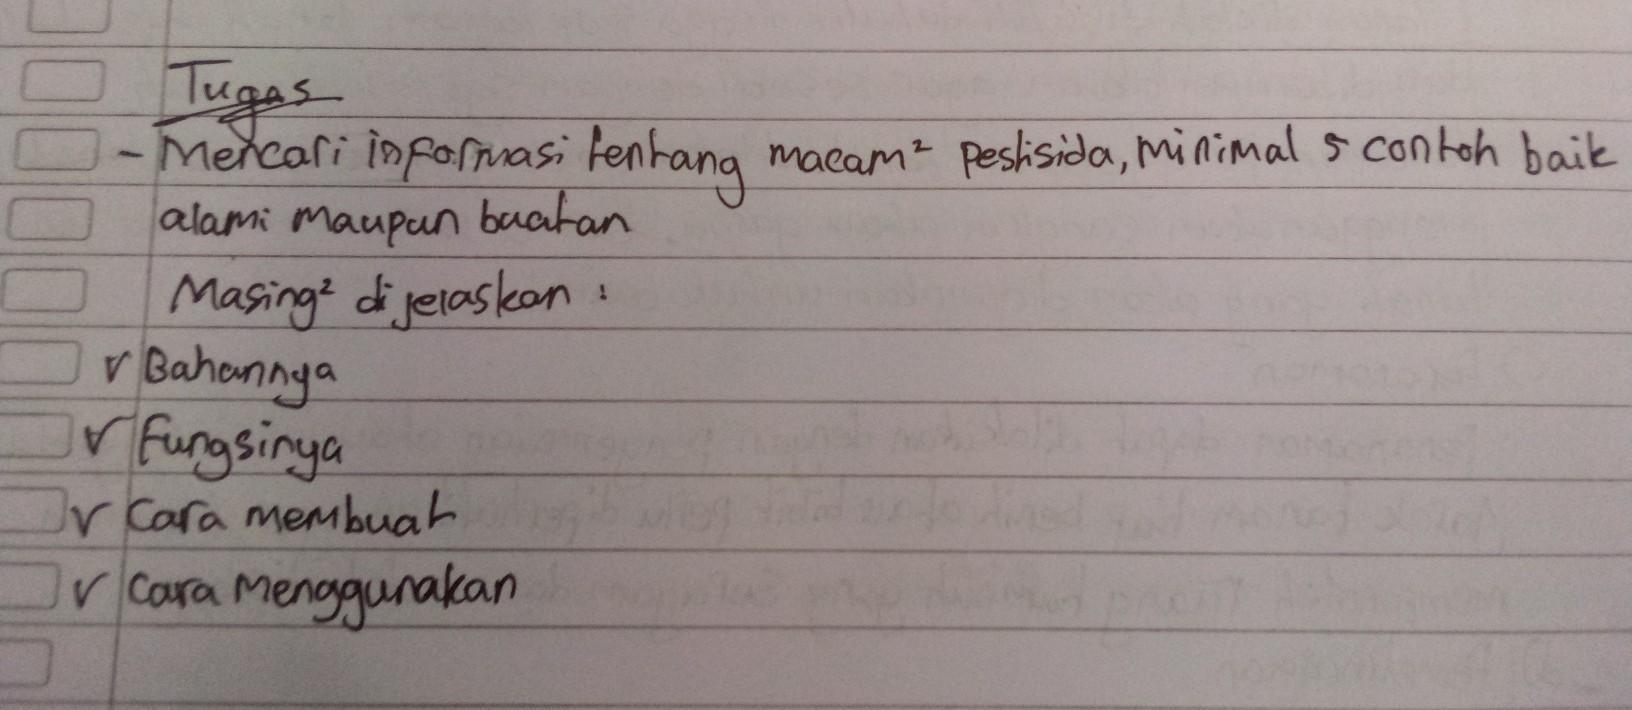 Tugas
- Mencari informasi tentang macam² pestisida, minimal 5 contoh baik
alami maupun buatan
Masing² dijelaskan :
v Bahannya
v Fungsinya
v Cara membuat
v Cara menggunakan